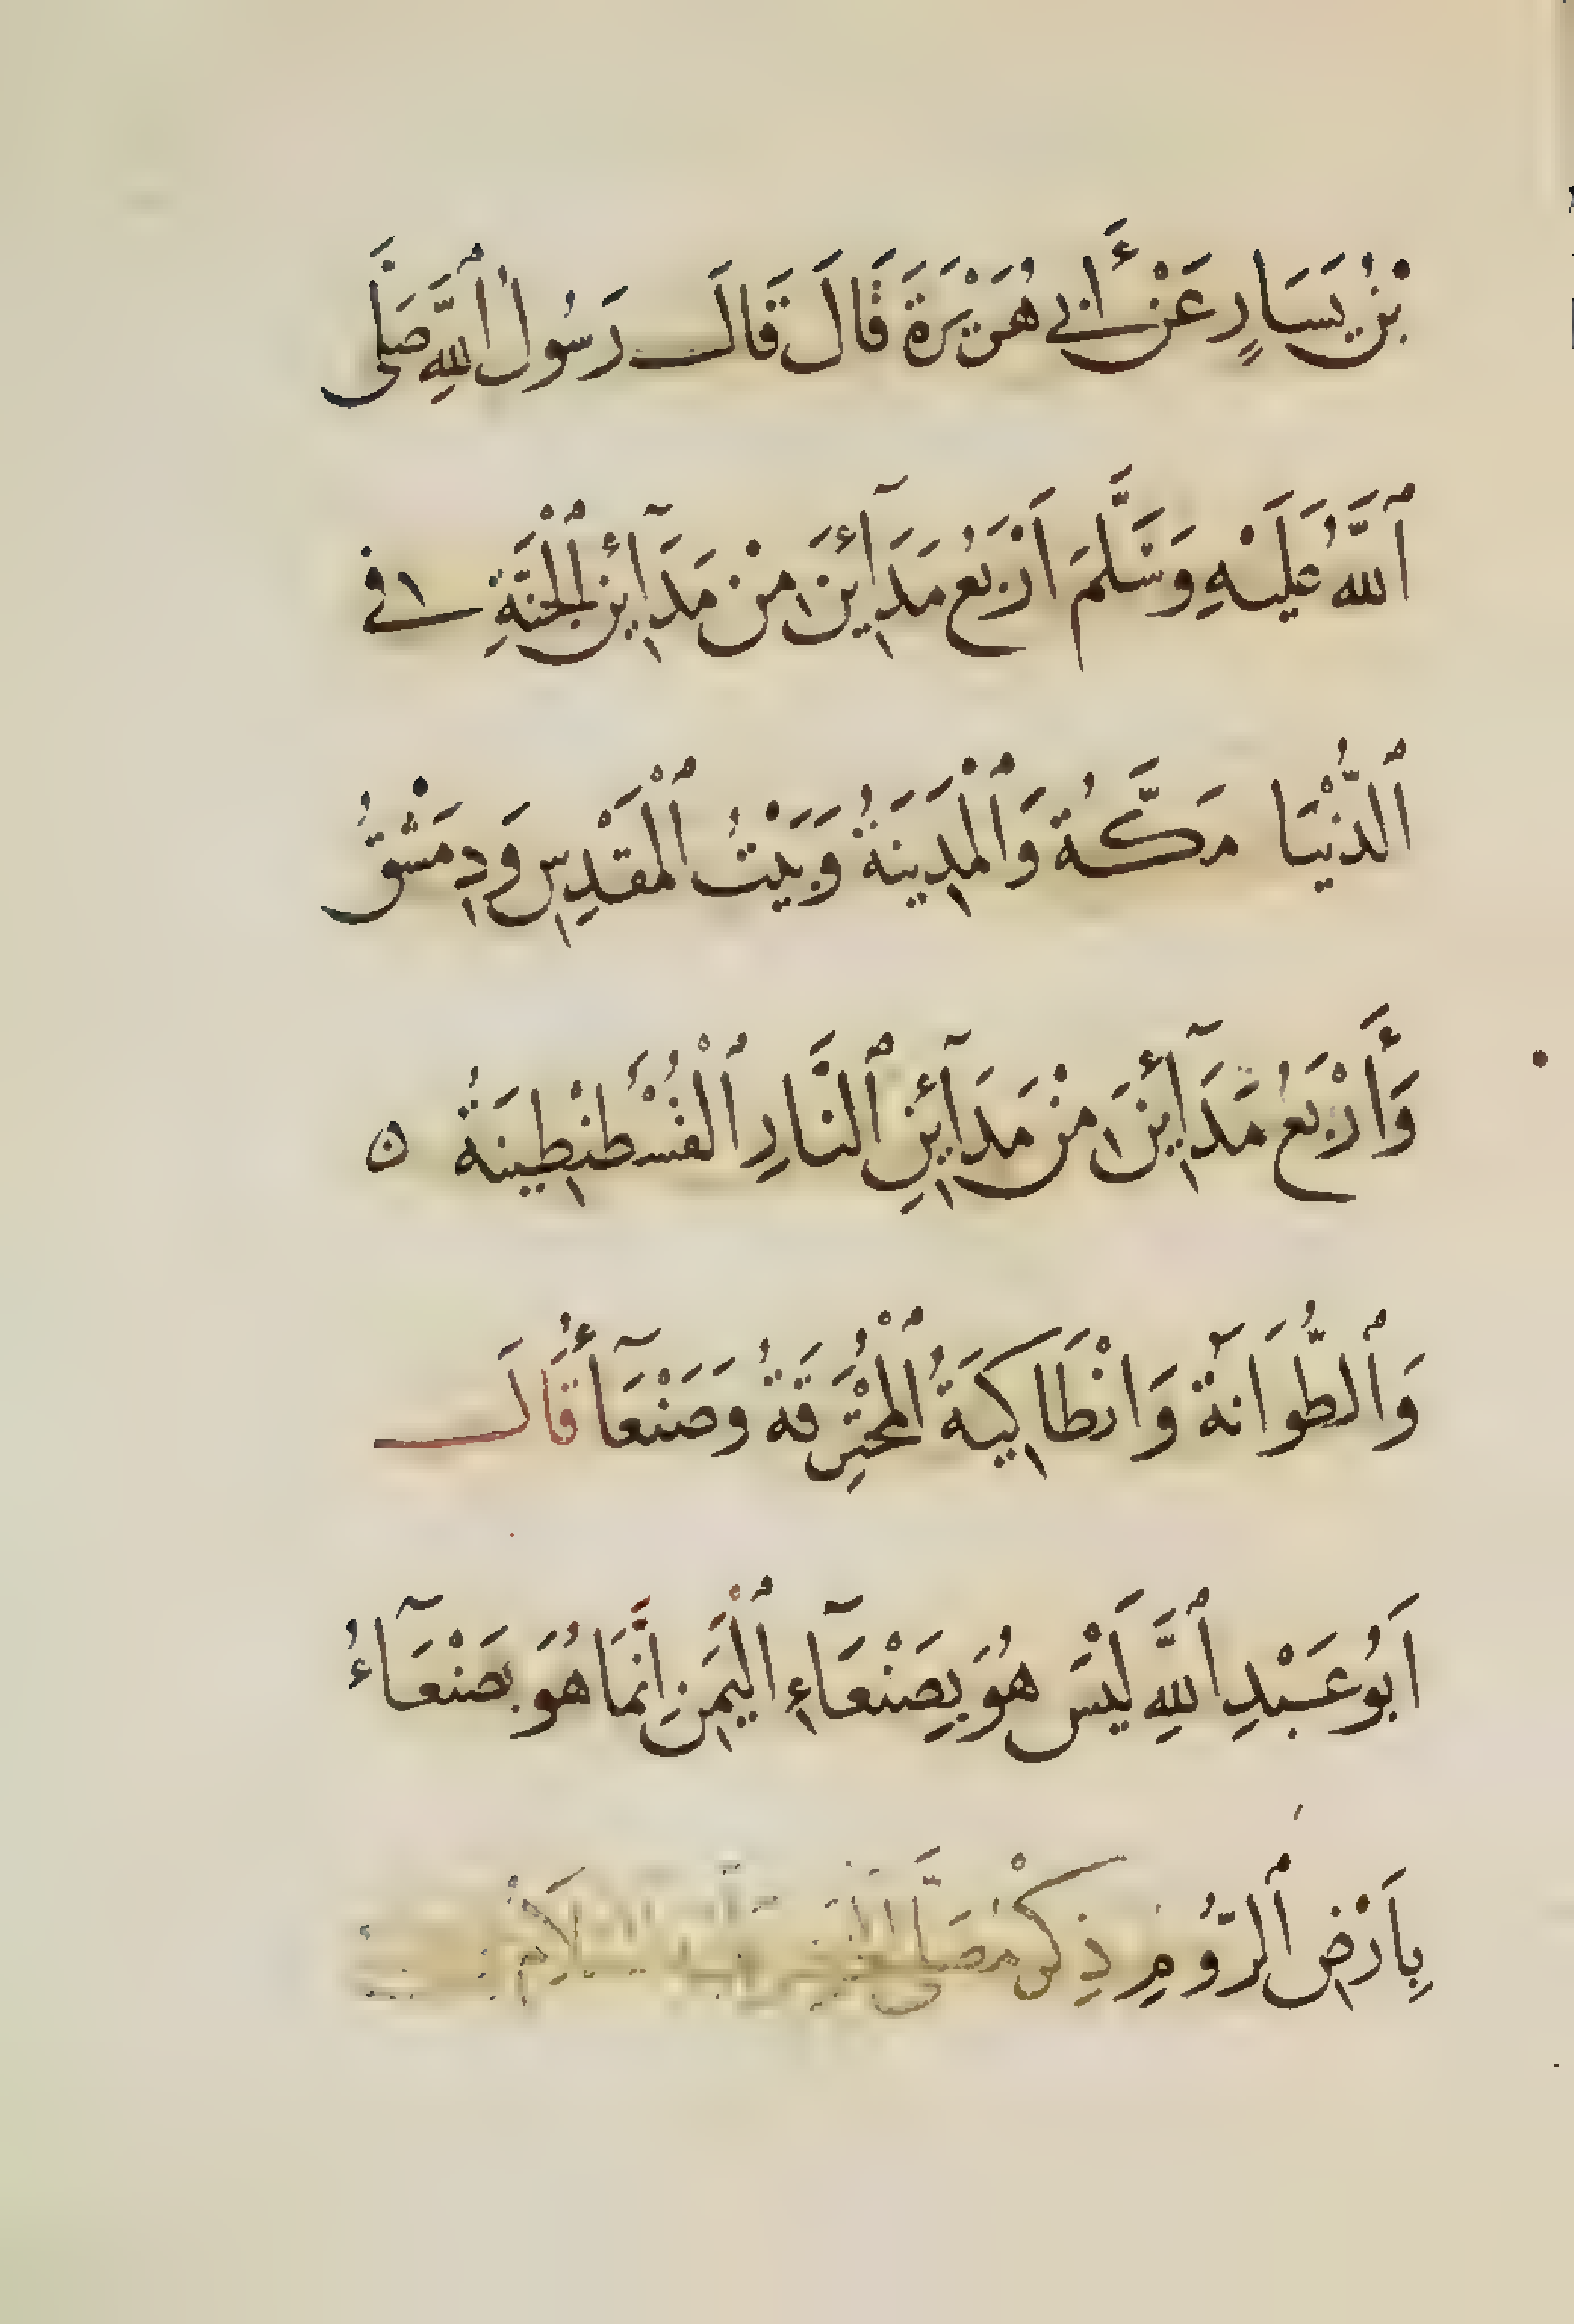 بْنُ يَسَارٍ عَنْ أَبِي هُرَيْرَةَ قَالَ قَالَ رَسُولُ ٱللَّهِ صَلَّى
ٱللَّهُ عَلَيْهِ وَسَلَّمَ أَرْبَعُ مَدَآئِنَ مِنْ مَدَآئِنِ ٱلْجَنَّةِ فِي
ٱلدُّنْيَا مَكَّةُ وَٱلْمَدِينَةُ وَبَيْتُ ٱلْمَقْدِسِ وَدِمَشْقُ
وَأَرْبَعُ مَدَآئِنَ مِنْ مَدَآئِنِ ٱلنَّارِ ٱلْقُسْطَنْطِينَةُ ه
وَٱلطُّوَانَةُ وَانْطَاكِيَةُ ٱلْمُحْتَرِقَةُ وَصَنْعَآءُ قَالَ
اَبُو عَبْدِ ٱللَّهِ لَيْسَ هُوَ بِصَنْعَآءِ ٱلْيَمَنِ اِنَّمَا هُوَ بِصَنْعَآءُ
بِاَرْضِ ٱلرُّومِ ذِكْرُ مُصَلَّى